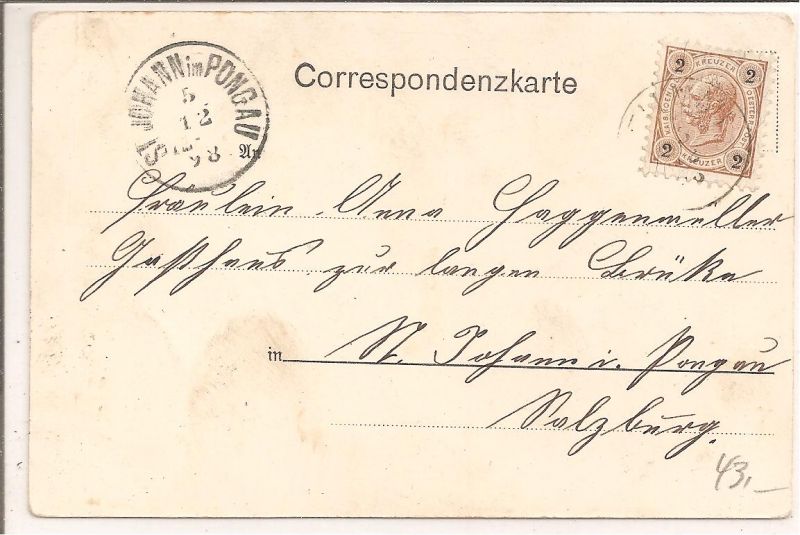 ST JOHANN im PONGAU
5
12
98
Correspondenzkarte
2 KREUZER 2
2 KREUZER 2
An
Fräulein Anna Haggenmeller
Gasthaus zur langen Brüke
in St. Johann i. Pongau
Salzburg.
43,–